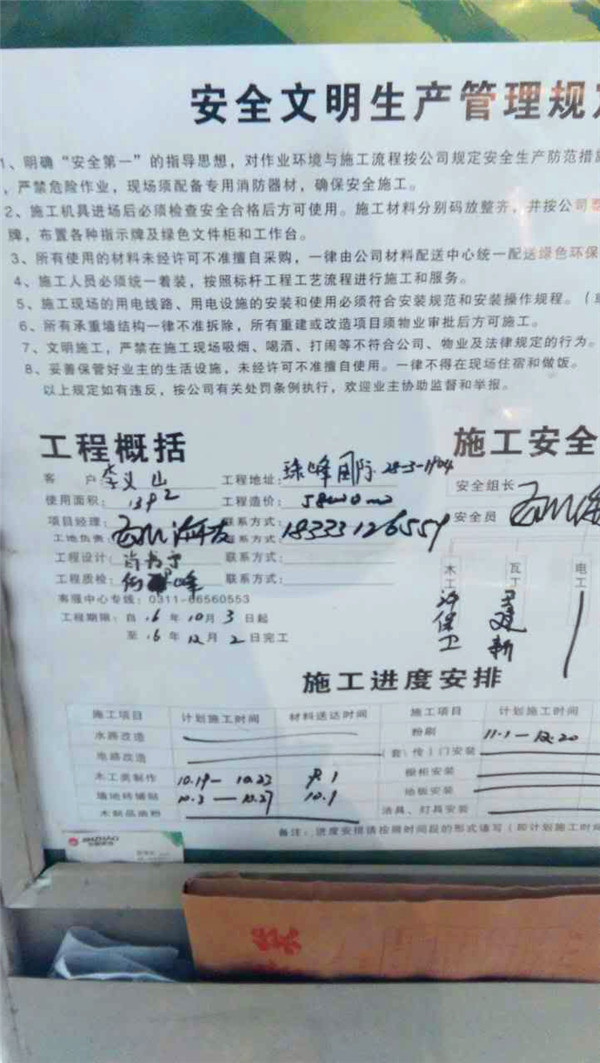 安全文明生产管理规定
1、明确“安全第一”的指导思想，对作业环境与施工流程按公司规定安全生产防范措施
，严禁危险作业，现场须配备专用消防器材，确保安全施工。
2、施工机具进场后必须检查安全合格后方可使用。施工材料分别码放整齐，并按公司
牌，布置各种指示牌及绿色文件柜和工作台。
3、所有使用的材料未经许可不准擅自采购，一律由公司材料配送中心统一配送绿色环保
4、施工人员必须统一着装，按照标杆工程工艺流程进行施工和服务。
5、施工现场的用电线路、用电设施的安装和使用必须符合安装规范和安装操作规程。（
6、所有承重墙结构一律不准拆除，所有重建或改造项目须物业审批后方可施工。
7、文明施工，严禁在施工现场吸烟、喝酒、打闹等不符合公司、物业及法律规定的行为。
8、妥善保管好业主的生活设施，未经许可不准擅自使用。一律不得在现场住宿和做饭。
以上规定如有违反，按公司有关处罚条例执行，欢迎业主协助监督和举报。
工程概括
客 户 李义山 工程地址: 珠峰国际 28-3-1904
使用面积: 139 2 工程造价: 58000
项目经理: 联系方式: 18333126559
工地负责: 联系方式:
工程设计: 联系方式:
工程质检: 联系方式:
客服中心专线: 0311-66560553
工程期限: 自 16 年 10 月 3 日起
至 16 年 12 月 2 日完工
施工安全
安全组长
安全员
木工 瓦工 电工
施工进度安排
施工项目 计划施工时间 材料送达时间 施工项目 计划施工时间
水路改造 粉刷 11.1—12.20
电路改造 （套、传）门安装
木工类制作 10.19—10.23 橱柜安装
墙地砖铺贴 10.3—10.27 10.1 地板安装
木制品油粉 洁具、灯具安装
备注: 进度安排请按照时间段的形式填写（即计划施工时间